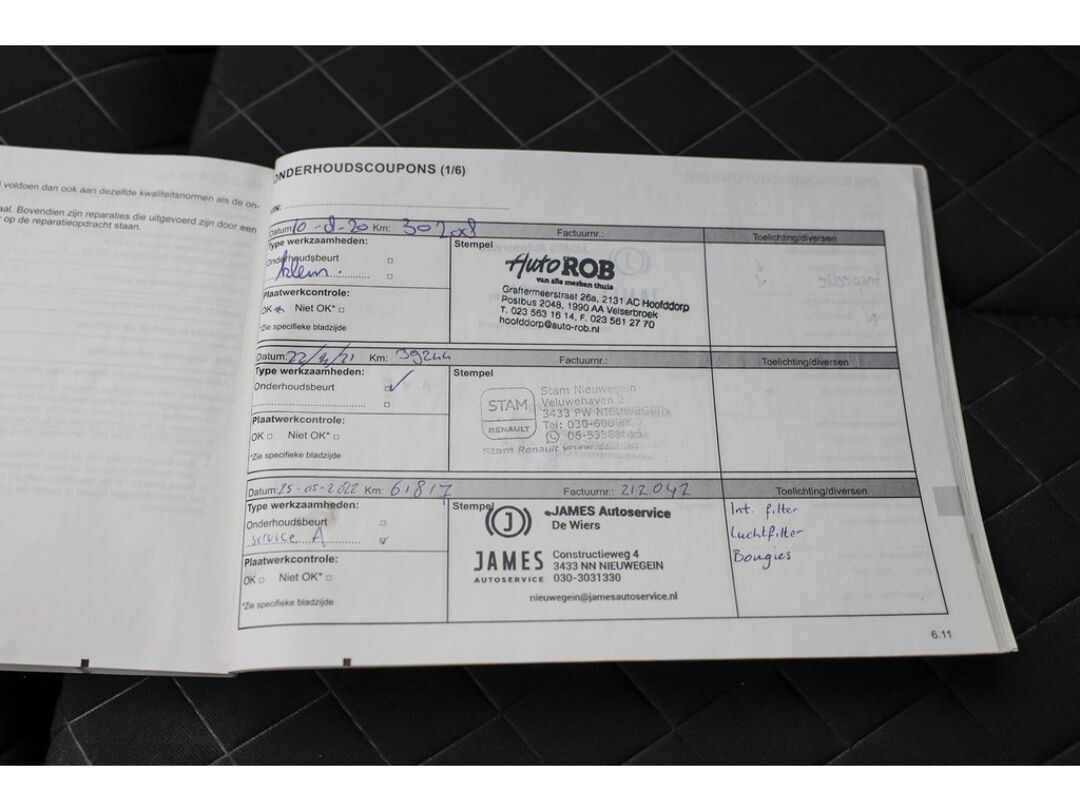 j voldoen dan ook aan dezelfde kwaliteitsnormen als de on-
aal. Bovendien zijn reparaties die uitgevoerd zijn door een
op de reparatieopdracht staan.
ONDERHOUDSCOUPONS (1/6)
Datum: 10-8-20 Km: 30208 Factuurnr.: Toelichting/diversen
Type werkzaamheden: Stempel
Onderhoudsbeurt
klein.
Plaatwerkcontrole:
OK Niet OK*
*Zie specifieke bladzijde
Auto ROB
van alle merken thuis
Graftermeerstraat 26a, 2131 AC Hoofddorp
Postbus 2048, 1990 AA Velserbroek
T. 023 563 16 14, F. 023 561 27 70
hoofddorp@auto-rob.nl
Datum: 22/3/21 Km: 39244 Factuurnr.: Toelichting/diversen
Type werkzaamheden: Stempel
Onderhoudsbeurt
Plaatwerkcontrole:
OK Niet OK*
*Zie specifieke bladzijde
STAM
RENAULT
Stam Nieuwegein
Veluwehaven 2
3433 PW NIEUWEGEIN
Tel: 030-608
06-5338
Stam Renault
Datum: 25-05-2022 Km: 61817 Factuurnr.: 212042 Toelichting/diversen
Type werkzaamheden: Stempel
Onderhoudsbeurt
Service A
Plaatwerkcontrole:
OK Niet OK*
*Zie specifieke bladzijde
J
JAMES
AUTOSERVICE
JAMES Autoservice
De Wiers
Constructieweg 4
3433 NN NIEUWEGEIN
030-3031330
nieuwegein@jamesautoservice.nl
Int. filter
Luchtfilter
Bougies
6.11